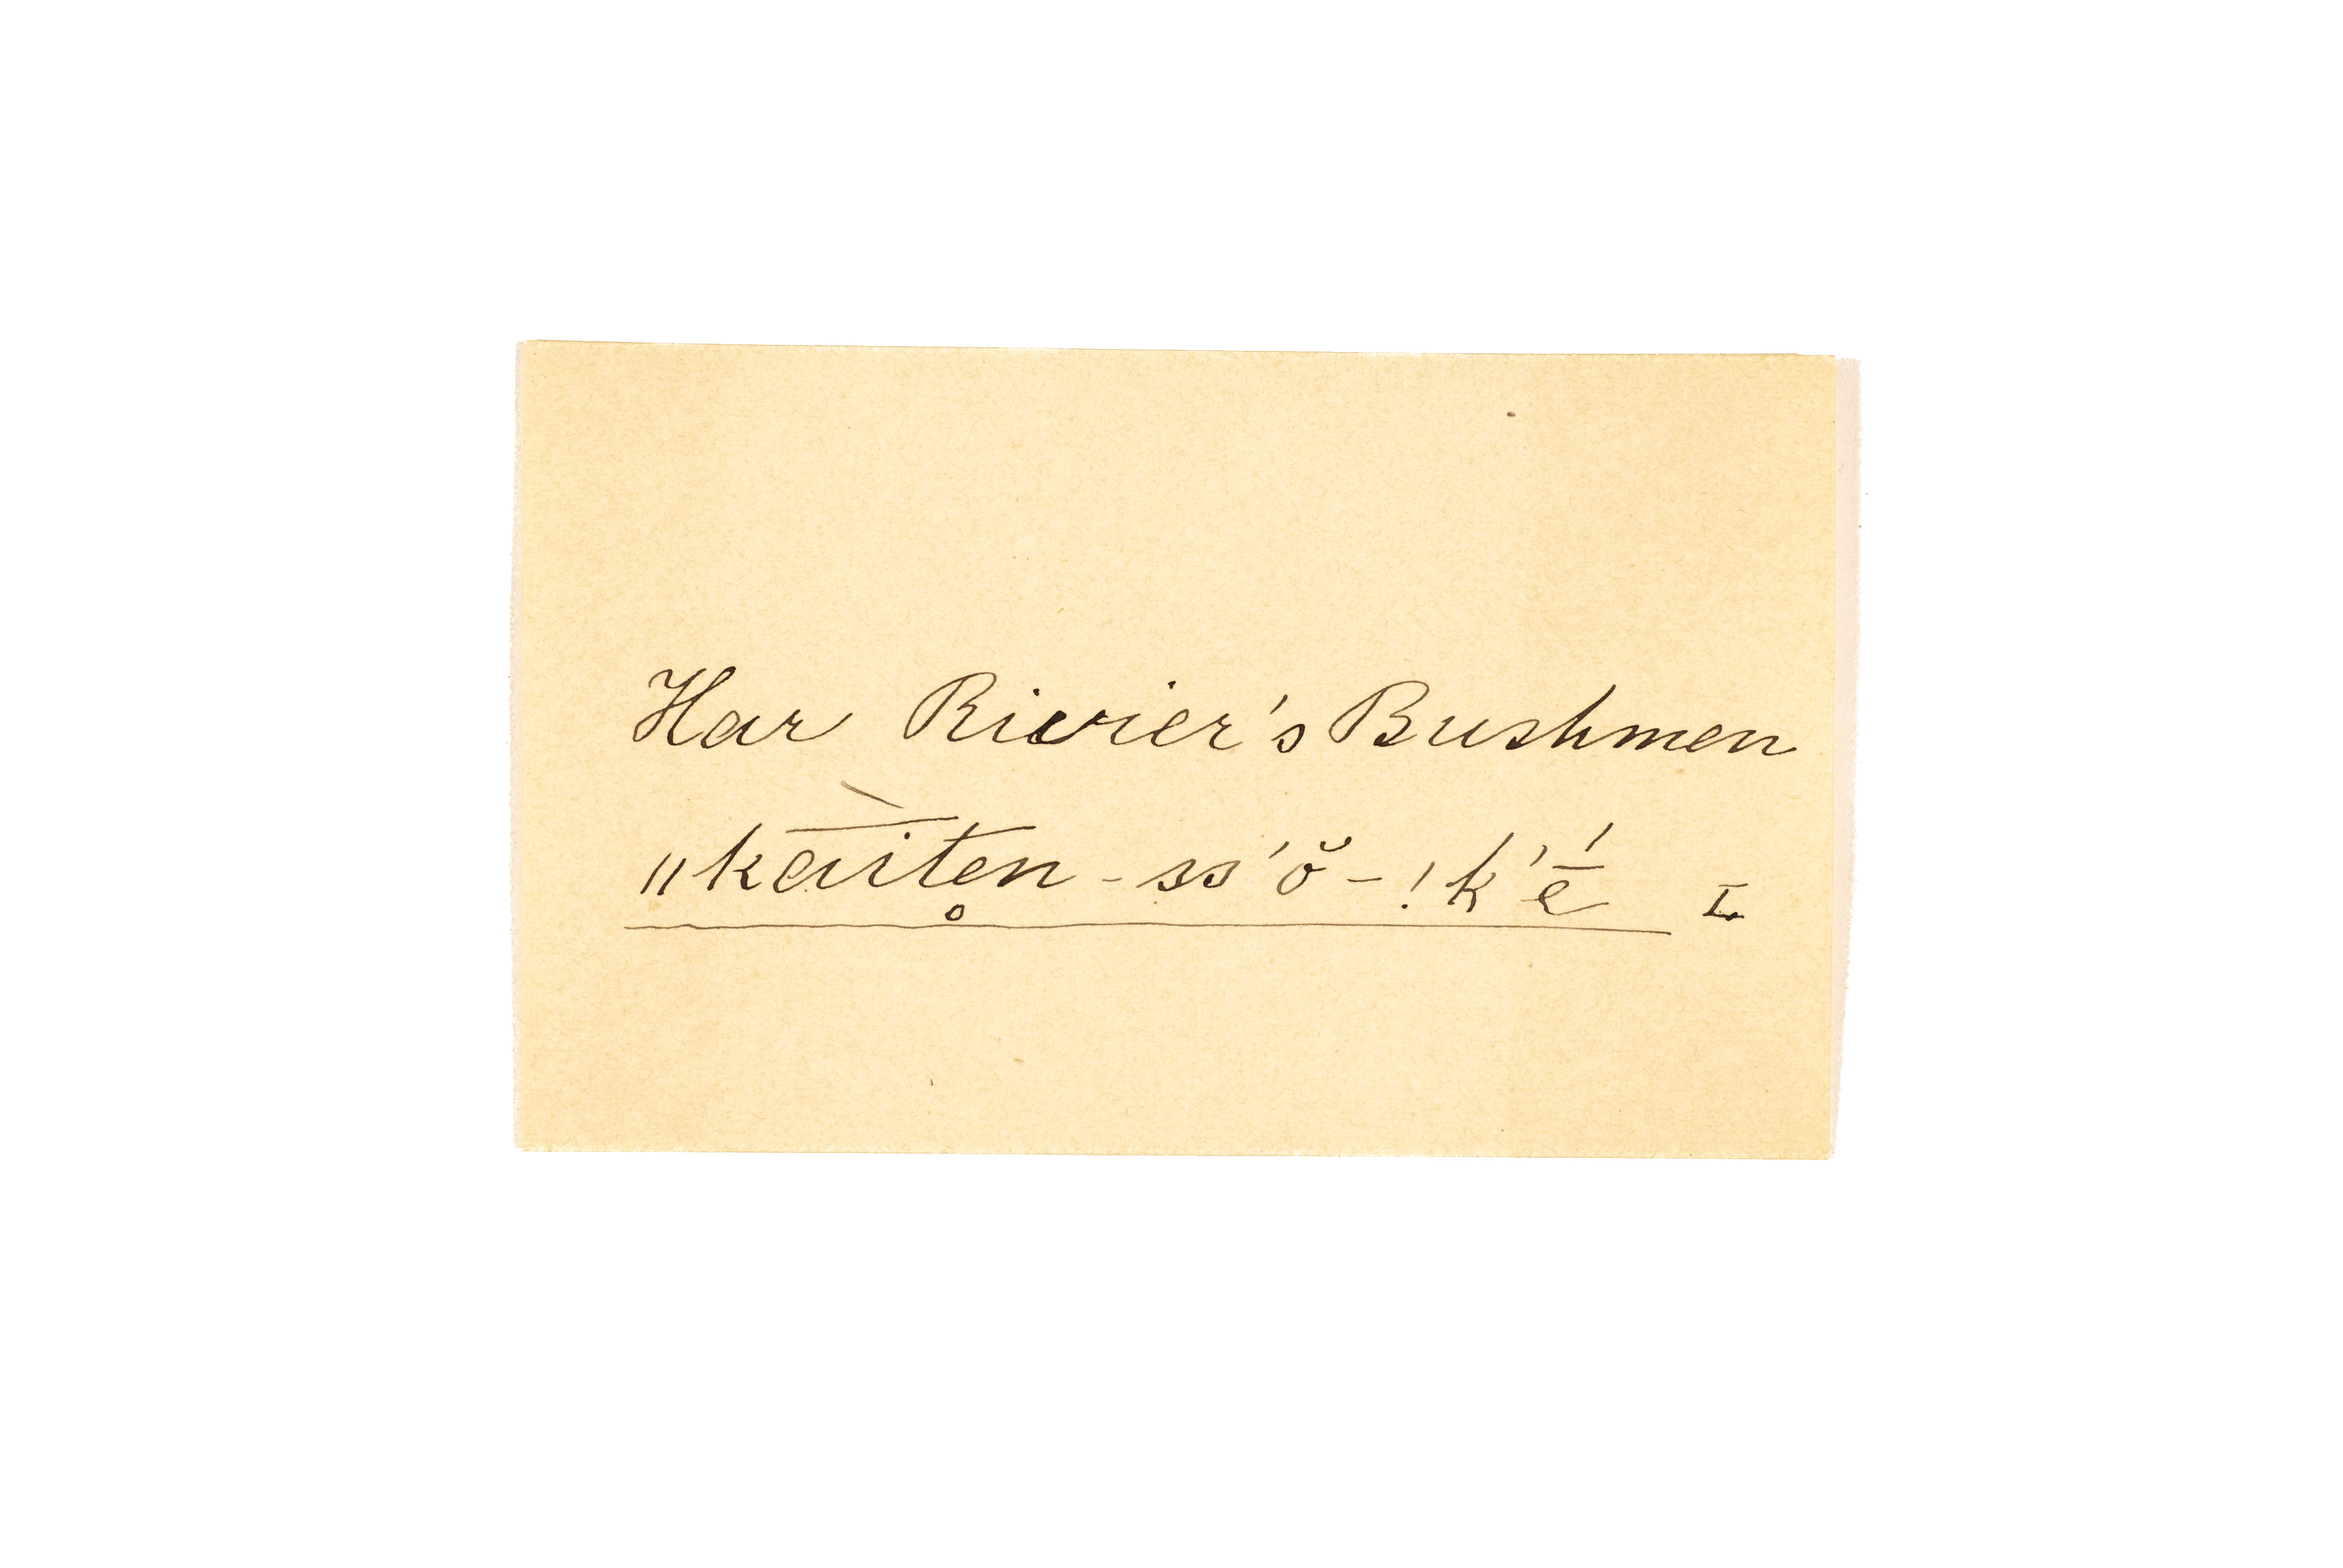 Har Rivier's Bushmen
ǁkā̀iten̥-ss'ŏ-!k'ḗ L